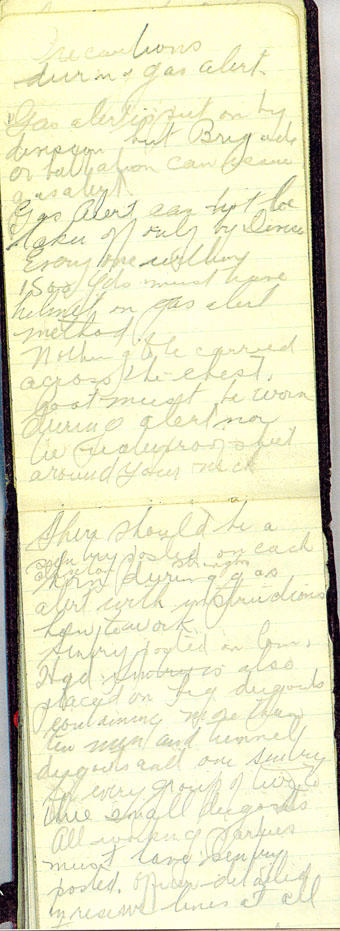 Precautions
during gas alert.
Gas alert is put on by
division but Brigade
or battalion can issue
gas alert
Gas Alert can not be
taken of only by Division
Every one within
1500 yds must have
helmet on gas alert
method
Nothing to be carried
across the chest.
Coat must be worn
during alert nor
be waterproof sheet
around your neck
There should be a
sentry posted on each
horn during gas
alert with instructions
how to work
Sentry posted on Com.
Hqd. Sentry is also
placed on big dugouts
containing more than
ten men and tunnel
dugouts and one sentry
for every group of two to
three small dugouts
All working parties
must have sentry
posted. Officer detailed
in reserve lines at all